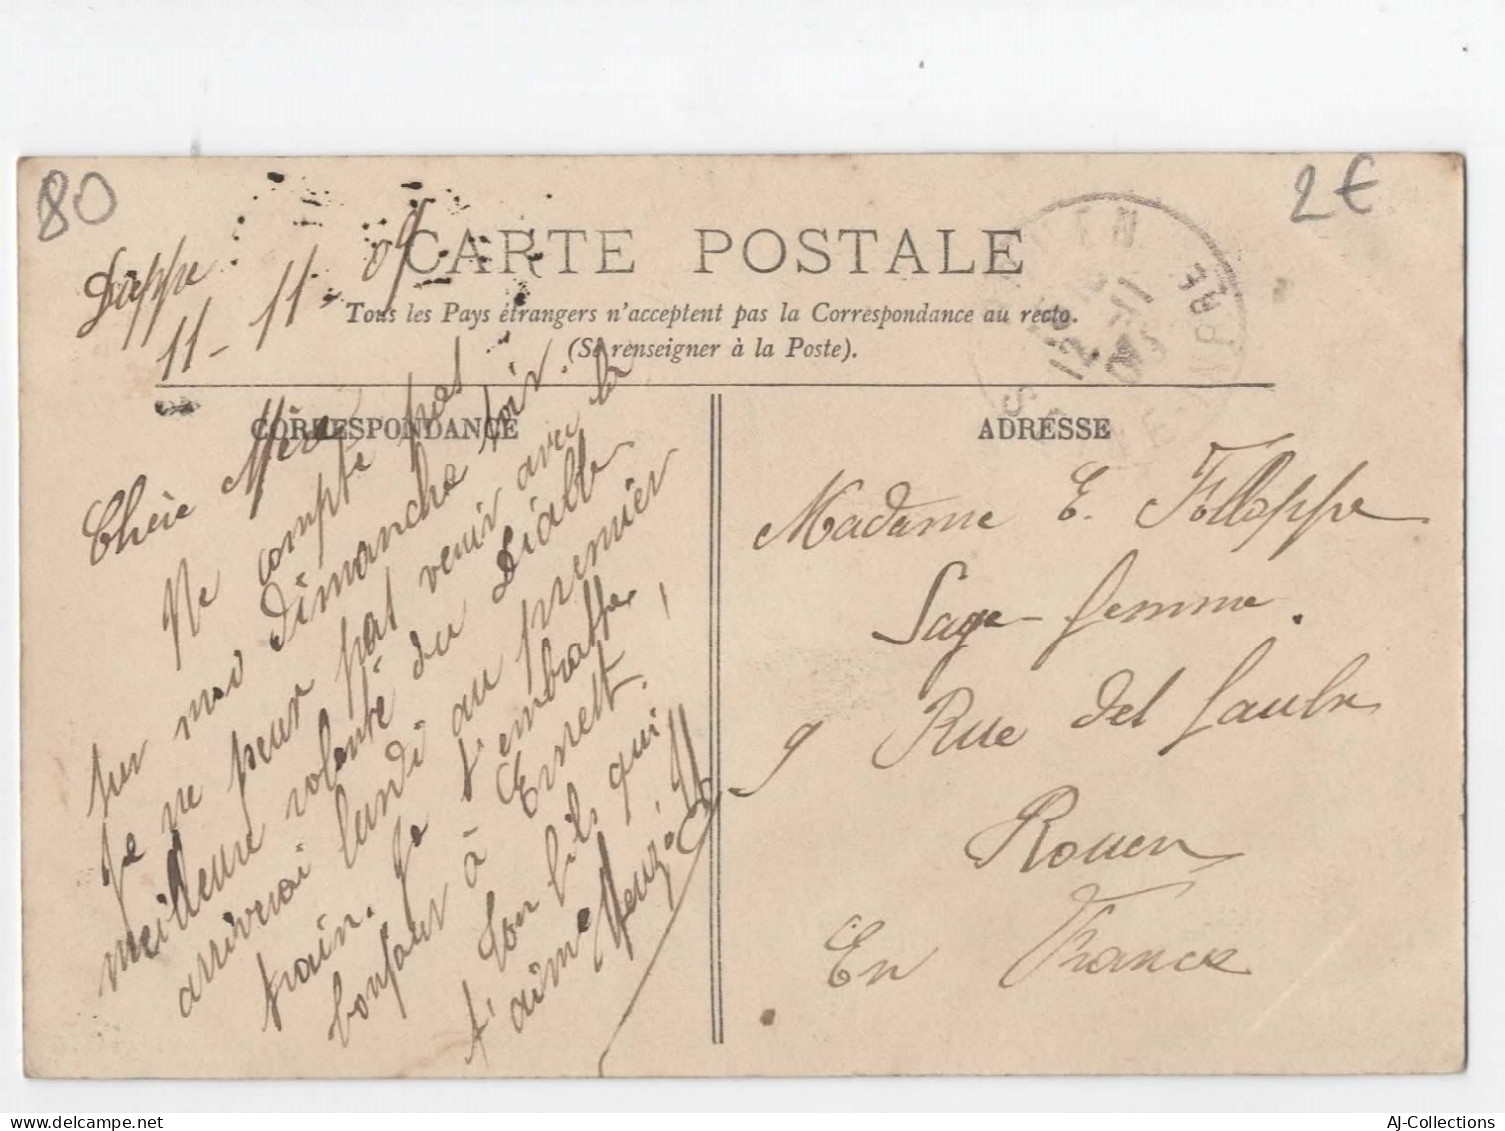 80
2€
11-11-09
CARTE POSTALE
Tous les Pays étrangers n'acceptent pas la Correspondance au recto.
(Se renseigner à la Poste).
CORRESPONDANCE
Chère Mère
Ne compte pas
sur moi Dimanche soir.
Je ne peux pas venir avec la
meilleure volonté du Diable
arriverai lundi au premier
train. Je t'embrasse,
bonjour à Ernest.
Ton fils qui
t'aime
ADRESSE
Madame E.
Sage-femme.
9 Rue del
Rouen
En France
12-11
09
AJ-Collections